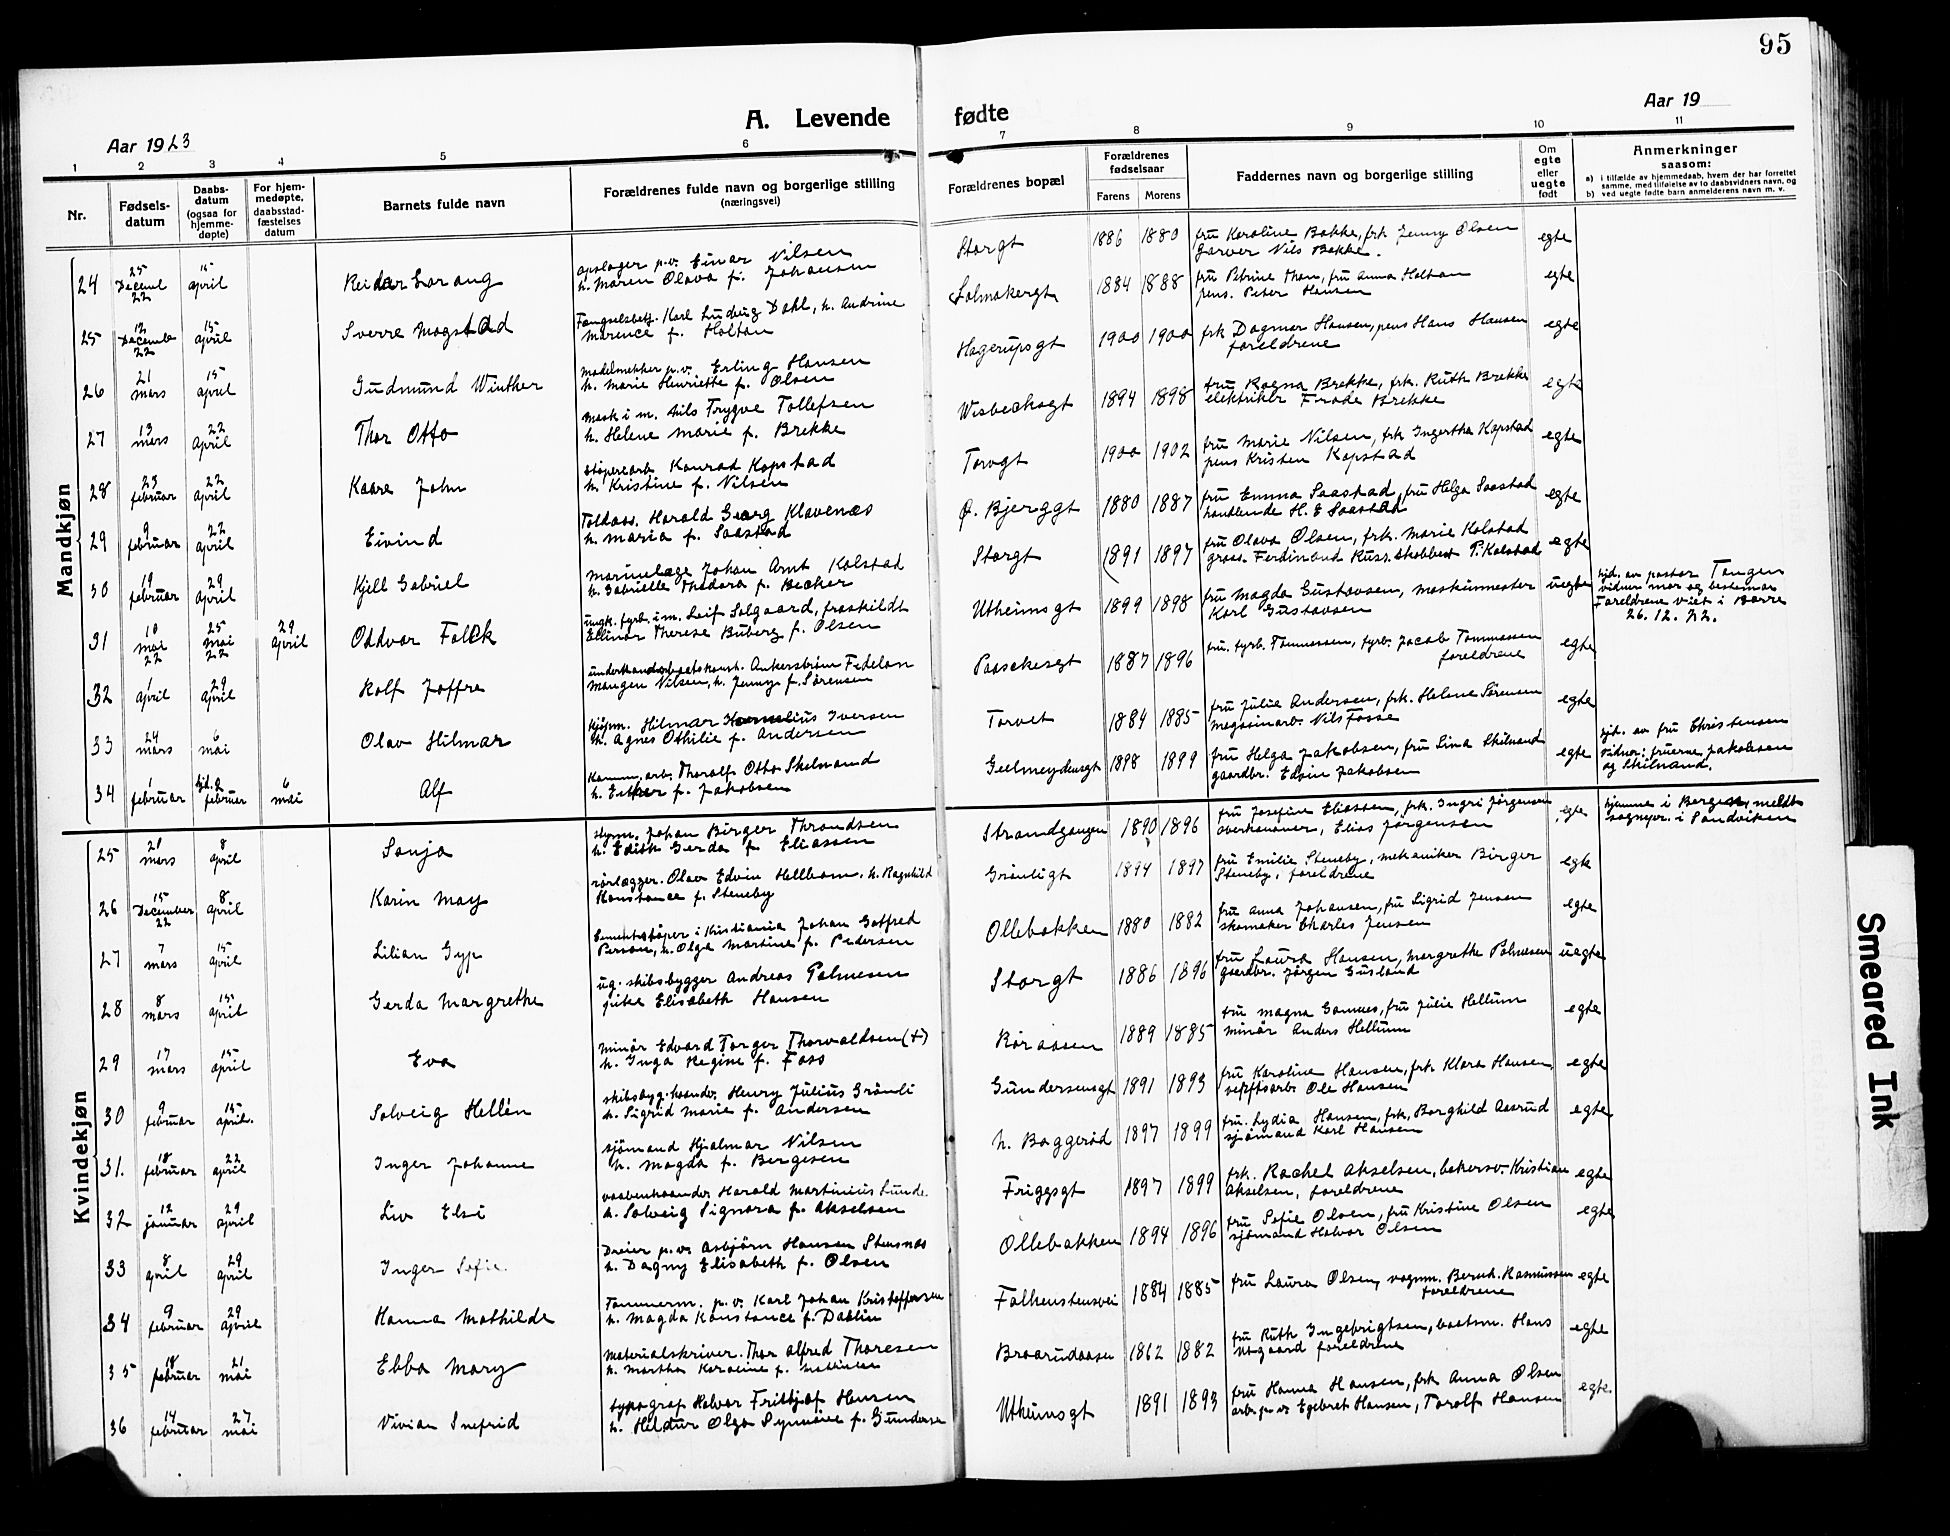 95
Aar 1923
A. Levende fødte
Aar 19
1 2 3 4 5 6 7 8 9 10 11
Nr.
Fødsels-datum
Daabs-datum (ogsaa for hjemme-døpte)
For hjem-medøpte, daabsstad-fæstelses datum
Barnets fulde navn
Forældrenes fulde navn og borgerlige stilling (næringsvei)
Forældrenes bopæl
Forældrenes fødselsaar
Farens Morens
Faddernes navn og borgerlige stilling
Om egte eller uegte født
Anmerkninger saasom:
a) i tilfælde av hjemmedaab, hvem der har forrettet samme, med tilføielse av to daabsvidners navn, og
b) ved uegte fødte barn anmelderens navn m. v.
Mandkjøn
24 25 Decemb 22 15 april Reidar Sorang opslager p.v. Einar Nilsen h. Maren Olava f. Johansen Storgt 1886 1880 fru Karoline Bakke, frk Jenny Olsen Garver Nils Bakke. egte
25 12 Decembe 22 15 april Sverre Magstad Fængselsbetj. Karl Ludvig Dahl, h. Andrine Marence f. Holtan 1884 1888 fru Petrine Thon, fru Anna Holtan pens. Peter Hansen egte
26 21 mars 15 april Gudmund Winther Modelsnekker p.v. Erling Hansen h. Marie Henriette f. Olsen Hagerupsgt 1900 1900 frk Dagmar Hansen, pens Hans Hansen foreldrene egte
27 13 mars 22 april Thor Otto mask i m. Nils Trygve Tollefsen h. Helene Marie f. Brekke Wisbechsgt 1894 1898 fru Ragna Brekke, frk. Ruth Brekke elektriker Frode Brekke egte
28 23 februar 22 april Kaare John støperiarb Konrad Kopstad h. Kristine f. Nilsen Torvgt 1900 1902 fru Marie Nilsen, frk Ingertha Kopstad pens Kristen Kopstad egte
29 9 februar 22 april Eivind Toldass. Harald Georg Klavenæs h. Maria f. Saastad Ø. Bjerggt 1880 1887 fru Emma Saastad, fru Helga Saastad handlende H. E Saastad egte
30 19 februar 29 april Kjell Gabriel Marinelæge Johan Arnt Kolstad h. Gabrielle Theodora f. Becker Storgt 1891 1897 fru Olava Olsen, frk. Marie Kolstad gross. Ferdinand Kuss. skobbest P. Kolstad egte
31 10 mai 22 25 mai 22 29 april Oddvar Falck ungk. fyrb. i m. Leif Solgaard, fraskildt Ellinor Therese Buberg f. Olsen Utheimsgt 1899 1898 fru Magda Gustavsen, maskinmester Karl Gustavsen uegte hjd. av pastor Tangen vidner mor og bestemor Foreldrene viet i Borre 26. 12. 22.
32 1 april 29 april Rolf Joffre Ankerstrøm Fedelon Mangen Nilsen, h. Jenny f. Sørensen Paaskesgt 1887 1896 fru. fyrb. Tommessen, fyrb. Jacob Tommessen foreldrene egte
33 24 mars 6 mai Olav Hilmar Kjøpm. Hilmar Kornelius Iversen h. Agnes Othilie f. Andersen Torvet 1884 1885 fru Julie Andersen, frk. Helene Sørensen magasinarb. Nils Fosse egte
34 1 februar hjd. 2 februar 6 mai Alf Komm. arb. Thoralf Otto Skilnand h. Esther f. Jakobsen Geelmeydensgt 1898 1899 fru Helga Jakobsen, fru Lina Skilnand gaardbr. Edvin Jakobsen egte hjd. av fru Christensen vidner: fruerne Jakobsen og Skilnand.
Kvindekjøn
25 21 mars 8 april Sonja styrm. Johan Birger Throndsen h. Edith Gerda f. Eliassen Strandgangen 1890 1896 fru Josefine Eliassen, frk. Ingri Jørgensen overkanoner, Elias Jørgensen egte hjemme i Bergen, meldt sogner. i Sandviken
26 15 December 22 8 april Karin May rørlægger. Olav Edvin Hellbom. h. Ragnhild Konstance f. Steneby Grønligt 1894 1897 fru Emilie Steneby, mekaniker Birger Steneby, foreldrene egte
27 7 mars 15 april Lilian Gyp Cementstøper i Kristiania Johan Gotfred Person, h. Olga Martine f. Pedersen Ollebakken 1880 1882 fru Anna Johansen, fru Sigrid Jensen skomaker Charles Jensen egte
28 8 mars 15 april Gerda Margrethe ug. skibsbygger Andreas Palmesen pike Elisabeth Hansen Storgt 1886 1896 fru Laura Hansen, Margrethe Palmesen gaardbr. Jørgen Gusland uegte
29 17 mars 15 april Eva Minør Edvard Torger Thorvaldsen (+) h. Inga Regine f. Foss Röraasen 1889 1885 fru Magna Gannes, fru Julie Hellum minør Anders Hellum egte
30 9 februar 15 april. Solveig Hellèn skibsbyg. Henry Julius Grønli h. Sigrid Marie f. Andersen Gundersensgt 1891 1893 fru Karoline Hansen, frk Klara Hansen verftsarb. Ole Hansen egte
31. 18 februar 22 april Inger Johanne sjømand Hjalmar Nilsen h. Magda f. Bergesen N. Baggerød 1897 1899 fru. Lydia Hansen, frk. Borghild Aasrud sjømand Karl Hansen egte
32 12 januar 29 april Liv Elsi Harald Martinius Lunde h. Solveig Signora f. Akselsen Friggsgt 1897 1899 frk. Rachel Akselsen, bakersv. Kristian Akselsen, foreldrene egte
33 8 april 29 april Inger Sofie. Dreier p.v. Asbjørn Hansen Stensnæs h. Dagny Elisabeth f. Olsen Ollebakken 1894 1896 fru Sofie Olsen, fru Kristine Olsen sjømand Halvor Olsen egte
34 9 februar 29 april Hanna Mathilde Tømmerm. p.v. Karl Johan Kristoffersen h. Magda Konstance f. Dahlin Falkenstensvei 1884 1885 fru Laura Olsen, vognm. Bernh. Rasmussen foreldrene egte
35 18 februar 21 mai Ebba Mary Materialskriver. Thor Alfred Thoresen h. Martha Karoline f. Braarudaasen 1862 1882 fru Ruth Ingebrigtsen, baatsm. Hans foreldrene egte
36 14 februar 27 mai Vivian Snefrid typograf Halvor Frithjof Hansen h. Hildur Olga Synnøve f. Gunderse Utheimsgt 1891 1893 fru Hanna Hansen, frk Anna Olsen arb. p.v. Egebret Hansen, Torolf Hansen egte.
Smeared Ink